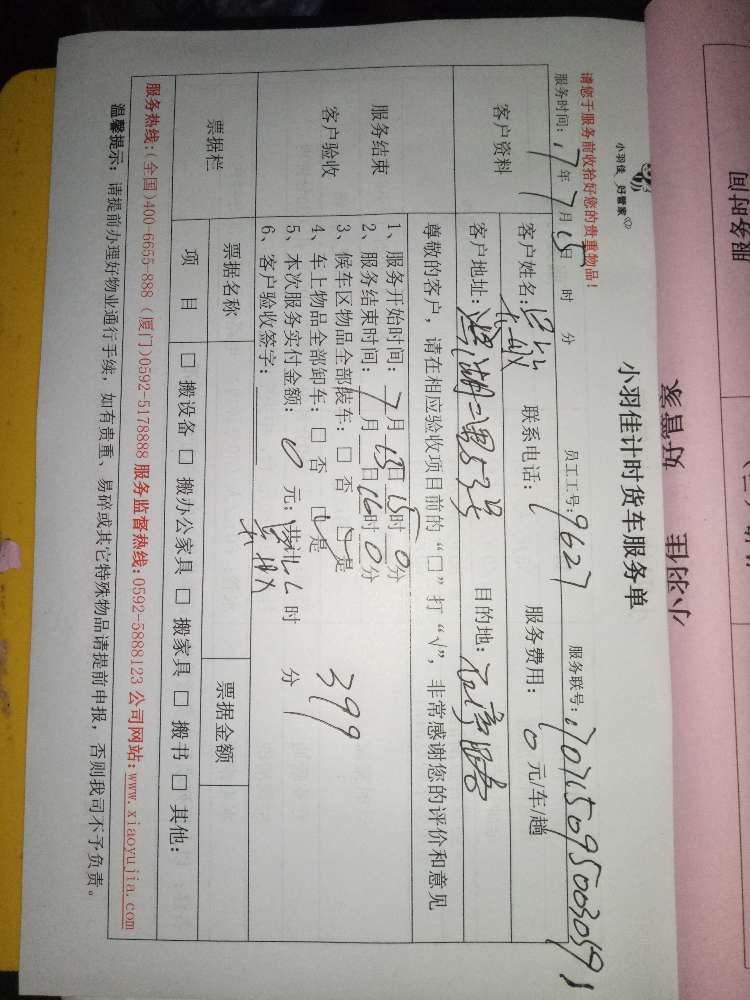 小羽佳 好管家
小羽佳 好管家
服务时间
小羽佳计时货车服务单
请您于服务前收拾好您的贵重物品!
服务时间: 17年7月15日 时 分 员工工号: 9627 服务联号:
客户资料
客户姓名: 联系电话: 服务费用: 0元/车/趟
客户地址: 目的地:
尊敬的客户,请在相应验收项目前的“□”打“√”,非常感谢您的评价和意见
服务结束
客户验收
1、服务开始时间: 7月15日15时0分
2、服务结束时间: 7月 日16时0分
3、候车区物品全部装车: □ 否 □ 是
4、车上物品全部卸车: □ 否 □ 是
5、本次服务实付金额: 0 元; 共计 时 分
399
6、客户验收签字:
票据栏
票据名称 票据金额
项 目 □ 搬设备 □ 搬办公家具 □ 搬家具 □ 搬书 □ 其他:
服务热线:(全国)400-6655-888 (厦门)0592-5178888 服务监督热线:0592-5888123 公司网站:www.xiaoyujia.com
温馨提示: 请提前办理好物业通行手续,如有贵重、易碎或其它特殊物品请提前申报,否则我司不予负责。